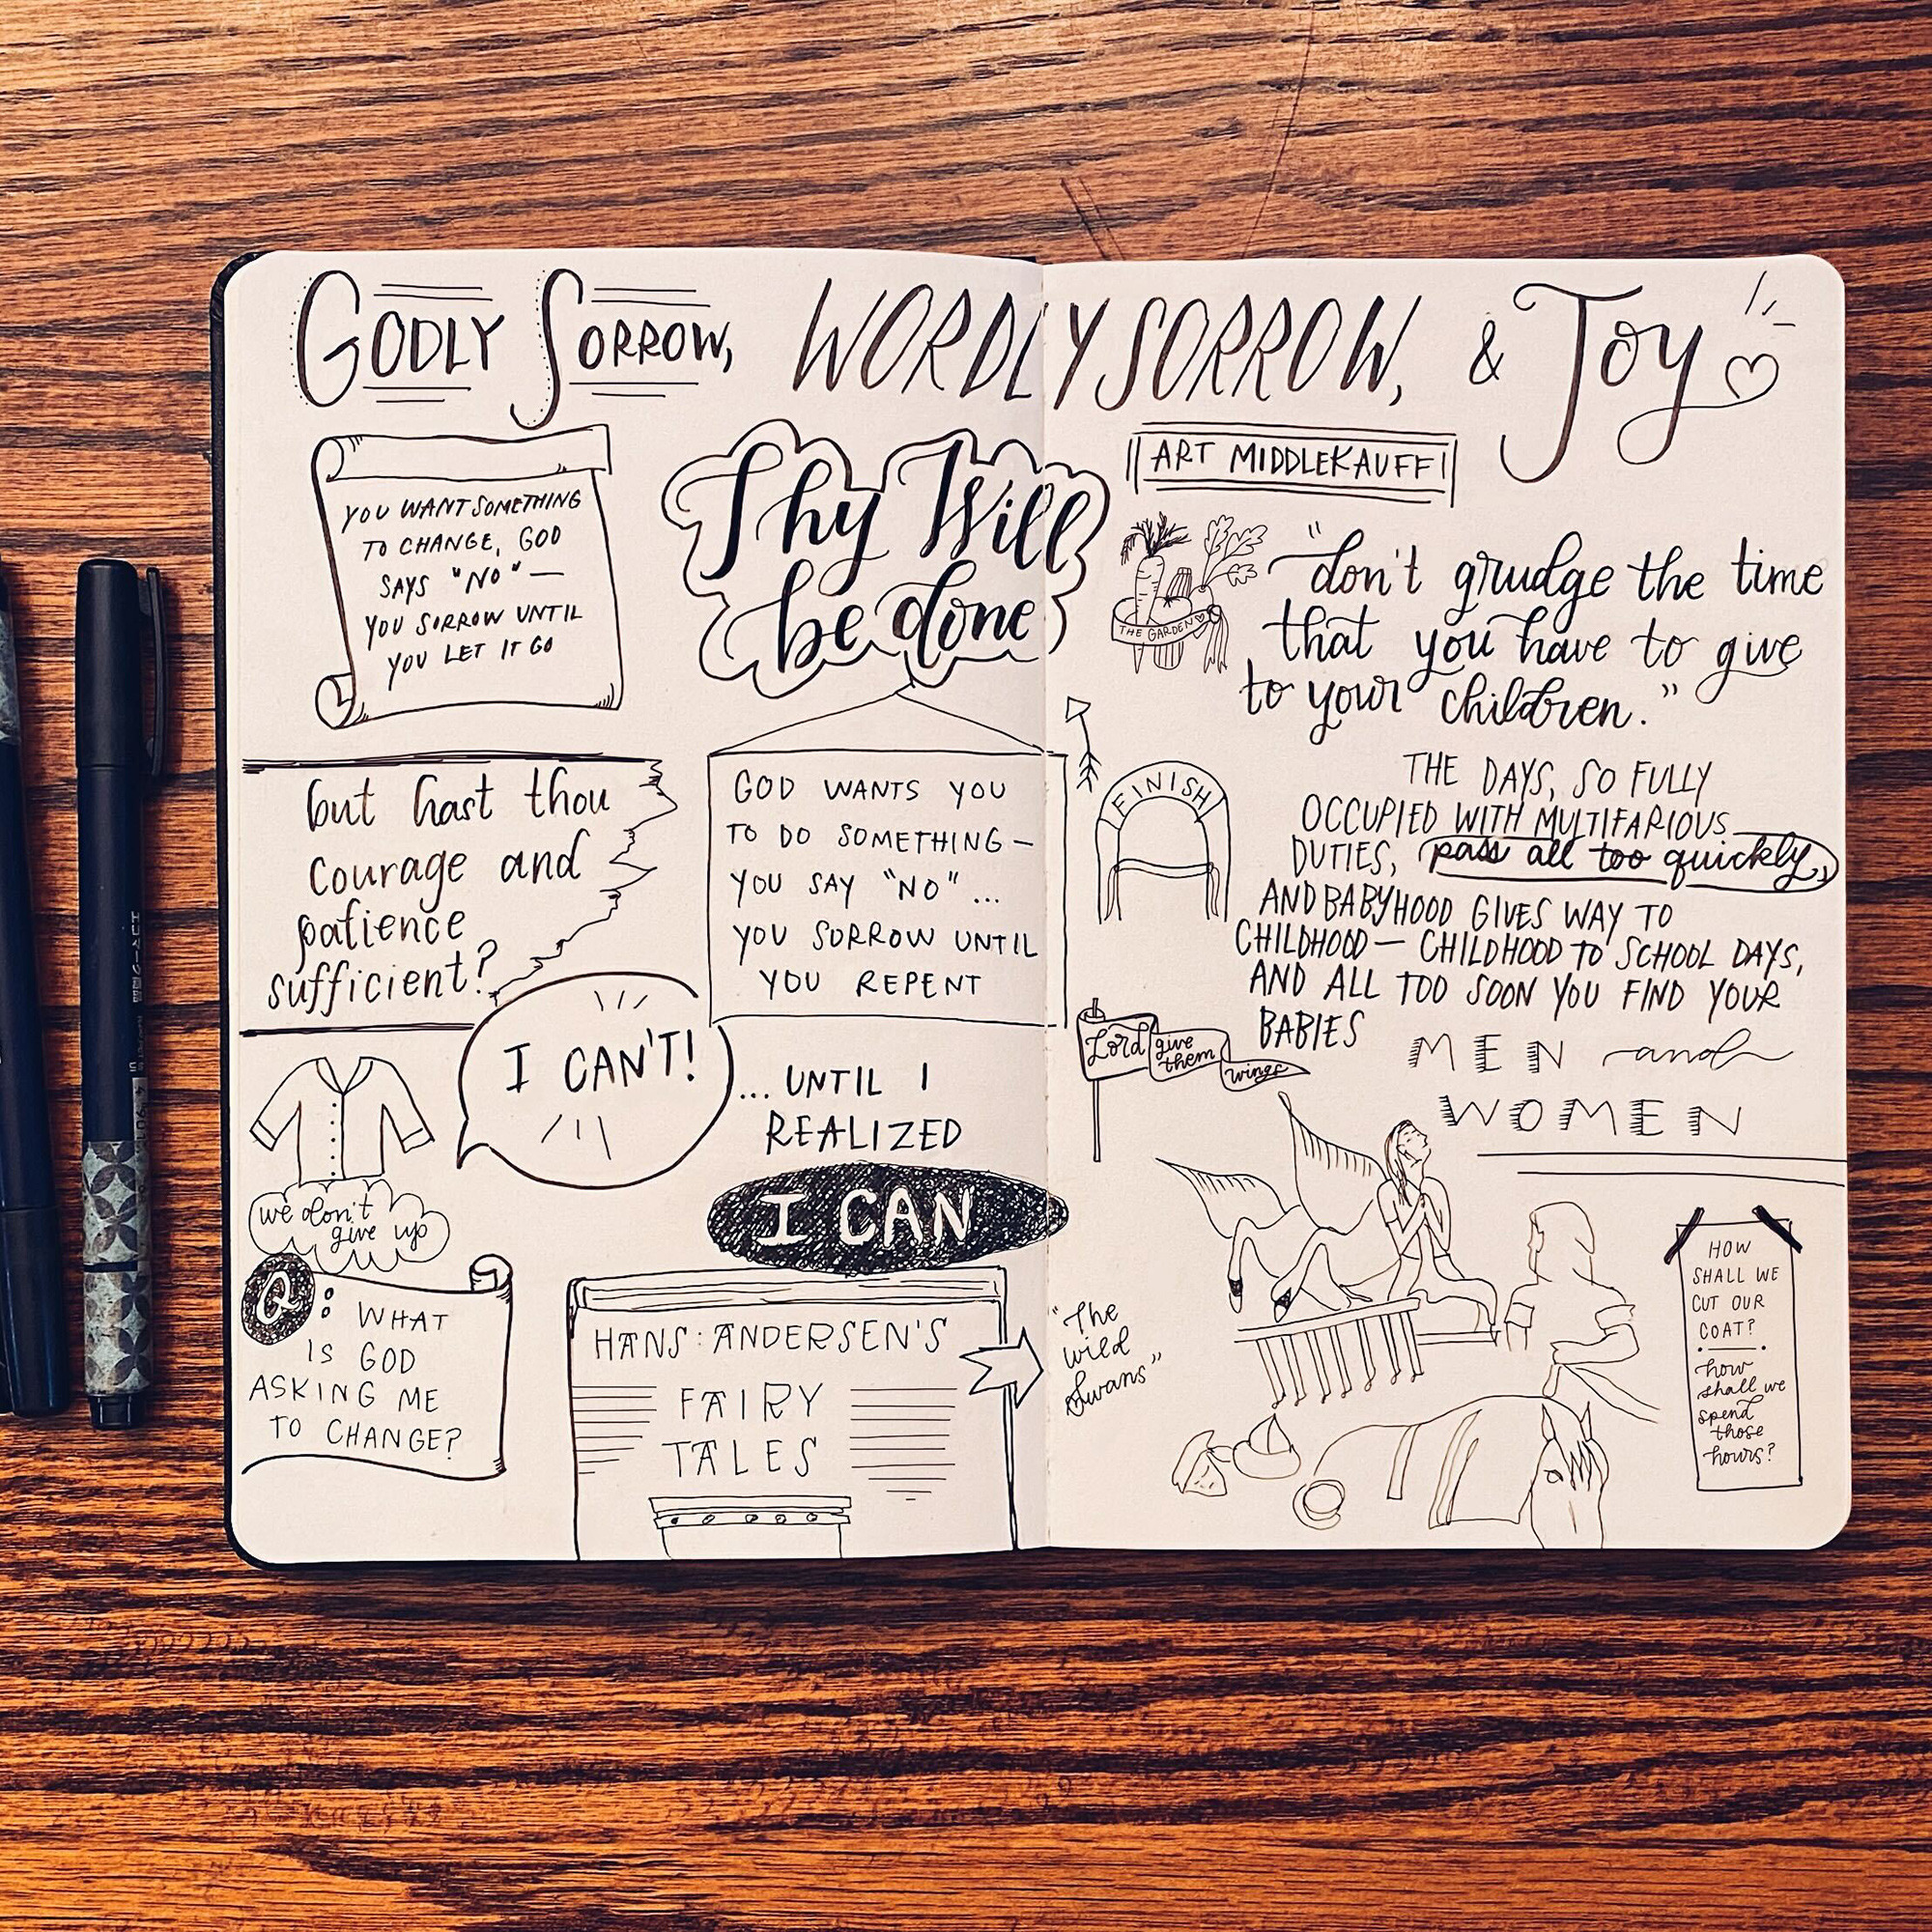 GODLY SORROW, WORDLY SORROW, & Joy
ART MIDDLEKAUFF
YOU WANT SOMETHING
TO CHANGE, GOD
SAYS "NO" —
YOU SORROW UNTIL
YOU LET IT GO
Thy Will
be done
GOD WANTS YOU
TO DO SOMETHING —
YOU SAY "NO"...
YOU SORROW UNTIL
YOU REPENT
but hast thou
courage and
patience
sufficient?
I CAN'T!
...UNTIL I
REALIZED
I CAN
we don't
give up
Q: WHAT
IS GOD
ASKING ME
TO CHANGE?
HANS: ANDERSEN'S
FAIRY
TALES
"The
wild
Swans"
THE GARDEN
"don't grudge the time
that you have to give
to your children."
FINISH
THE DAYS, SO FULLY
OCCUPIED WITH MULTIFARIOUS
DUTIES, pass all too quickly,
AND BABYHOOD GIVES WAY TO
CHILDHOOD — CHILDHOOD TO SCHOOL DAYS,
AND ALL TOO SOON YOU FIND YOUR
BABIES
MEN and
WOMEN
Lord give
them
wings
HOW
SHALL WE
CUT OUR
COAT?
how
shall we
spend
those
hours?